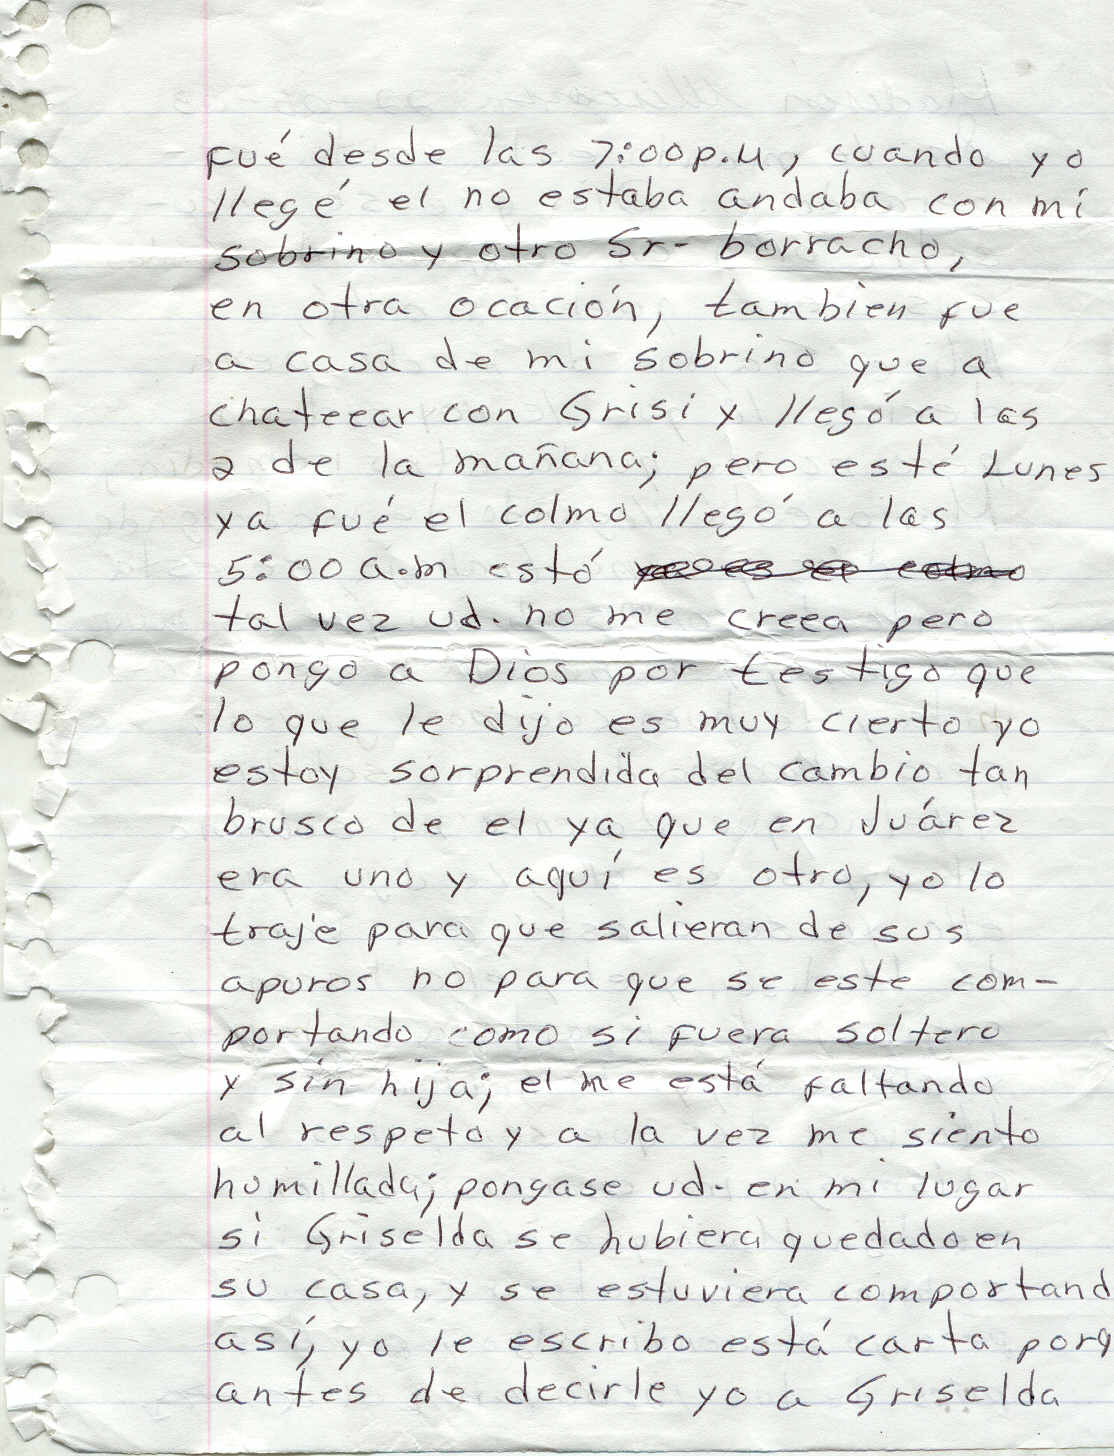 fué desde las 7:00p.m, cuando yo
llegé el no estaba andaba con mi
sobrino y otro Sr- borracho,
en otra ocación, tambien fue
a casa de mi sobrino que a
chateear con Grisi y llegó a las
2 de la mañana; pero esté Lunes
ya fué el colmo llegó a las
5:00 a.m estó ya es el colmo
tal vez ud. no me creea pero
pongo a Dios por testigo que
lo que le dijo es muy cierto yo
estoy sorprendida del cambio tan
brusco de el ya que en Juárez
era uno y aquí es otro, yo lo
traje para que salieran de sus
apuros no para que se este com-
portando como si fuera soltero
y sin hija; el me está faltando
al respeto y a la vez me siento
humillada; pongase ud. en mi lugar
si Griselda se hubiera quedado en
su casa, y se estuviera comportand
así, yo le escribo está carta porq
antes de decirle yo a Griselda